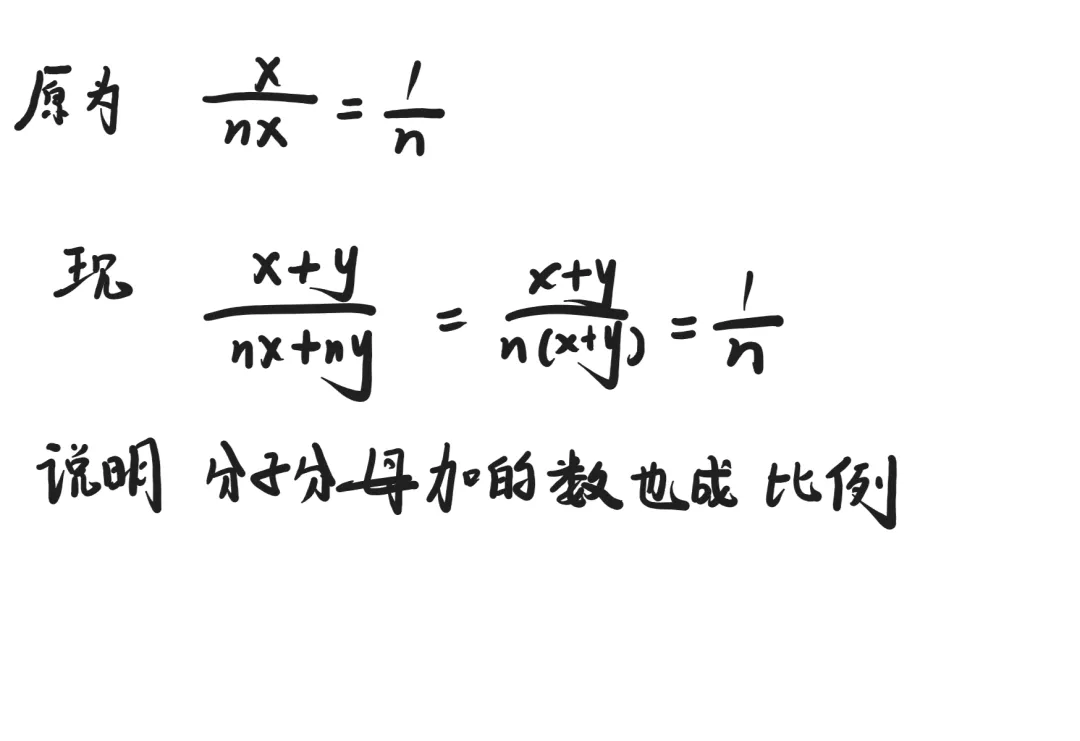 原为 x/nx = 1/n
现 x+y/nx+ny = x+y/n(x+y) = 1/n
说明 分子分母加的数也成比例